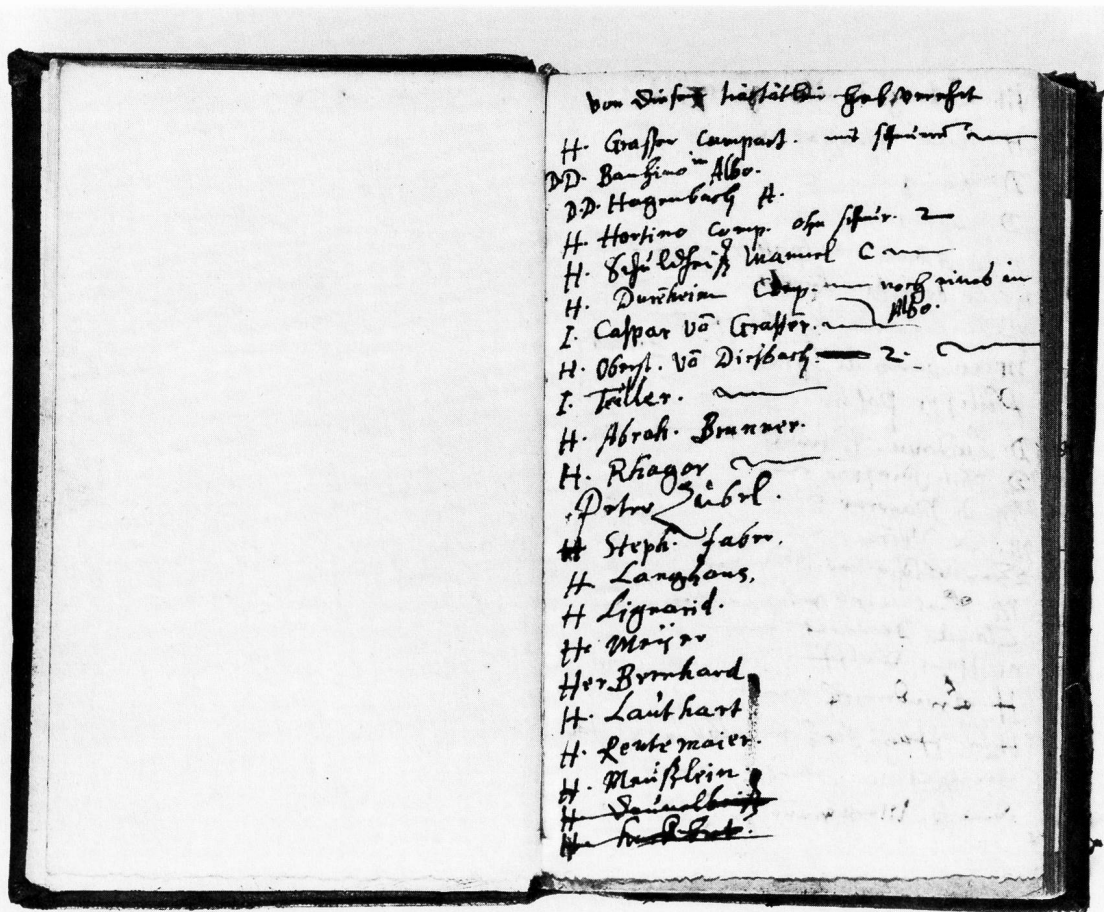 von diesen tractätlin hab verehrt
H. Grasser Compact. mit schnüren
D.D. Bauhino in Albo.
D.D. Hagenbach A.
H. Hortino Comp. ohn schnür. 2
H. Schuldheiß Manuel C
H. Durrheim Comp. noch eines in Albo.
I. Caspar vō Graffēr.
H. Oberst. vō Diesbach 2.
I. Teiller.
H. Abrah. Brunner.
H. Rhagor
Peter Zubel.
H Steph. faber.
H Langhans,
H Lignarid.
H. Meÿer
Her Bernhard
H. Lauthart
H. Leutemaier.
H. Meüßlein
H
H